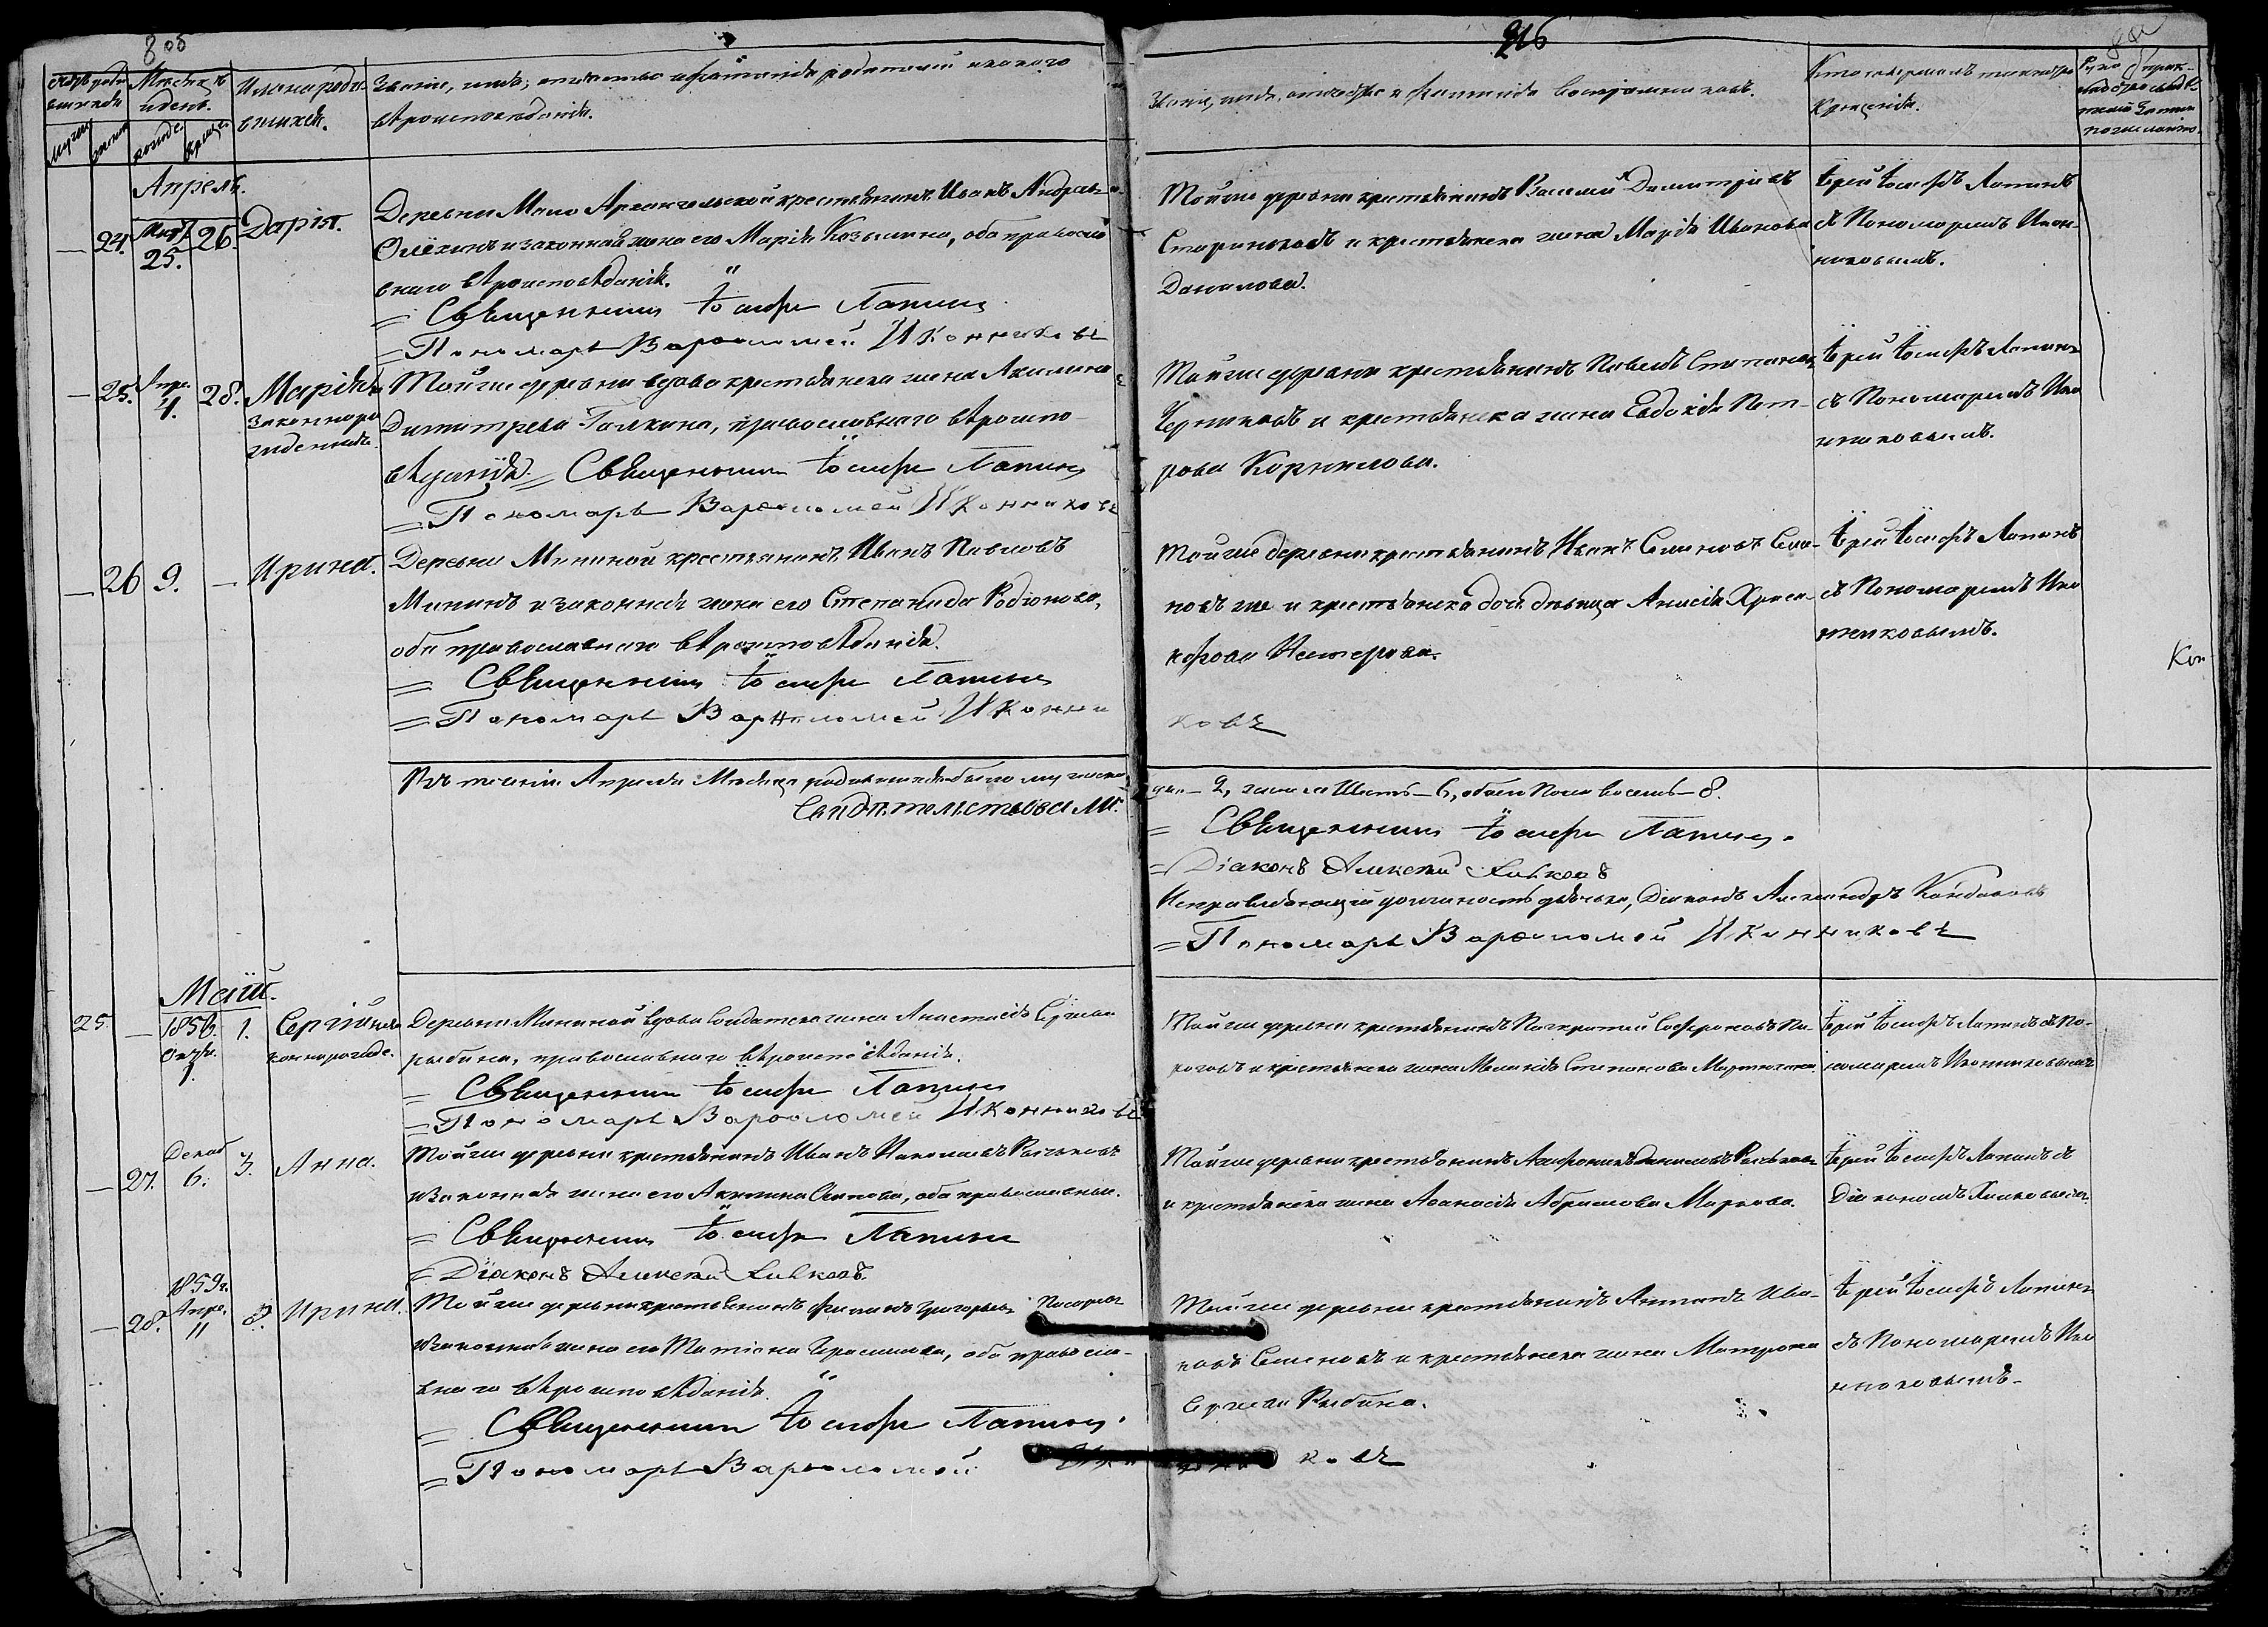 805
216
Счетъ роди
вшихся
Мѣсяцъ
и день.
Имена роди-
вшихся.
Званіе, имя, отчество и фамилія родителей и какого
вѣроисповѣданія.
Званіе, имя, отчество и фамилія воспріемниковъ.
Кто совершалъ таинство
Крещенія.
Апрель.
24.
Мар.
25.
26.
Дарія.
Деревни Мало Архангельской крестьянинъ Иванъ Андреевъ
Олёхинъ и законная жена его Марія Козьмина, оба правосла
внаго вѣроисповѣданія.
= Священникъ Іосифъ Лапинъ
= Пономарь Варфоломей Иконниковъ
Тойже деревни крестьянинъ Василій Димитріевъ
Стариковъ и крестьянска жена Марія Иванова
Данилова.
Іерей Іосифъ Лапинъ
съ Пономаремъ Икон-
никовымъ.
25.
Апре.
4.
28.
Марія не
законноро
жденная.
Тойже деревни вдова крестьянска жена Акилина
Димитрева Галкина, православнаго вѣроиспо-
вѣданія. = Священникъ Іосифъ Лапинъ
= Пономарь Варфоломей Иконниковъ
Тойже деревни крестьянинъ Павелъ Степановъ
Черниковъ и крестьянска жена Евдокія Пет-
рова Корнилова.
Іерей Іосифъ Лапинъ
съ Пономаремъ Ико
нниковымъ.
26
9.
Ирина.
Деревни Мининой крестьянинъ Иванъ Павловъ
Мининъ и законная жена его Степанида Родіонова,
оба православнаго вѣроисповѣданія.
= Священникъ Іосифъ Лапинъ
= Пономарь Варфоломей Иконни
ковъ
Тойже деревни крестьянинъ Иванъ Семеновъ Семе-
новъ же и крестьянска дочь дѣвица Анисія
Нестерова.
Іерей Іосифъ Лапинъ
съ Пономаремъ Ико
нниковымъ.
Кон
Въ теченіи Апреля Мѣсяца родившихся было мужеска
пола - 2, женска Шесть - 6, обоего Пола восемь - 8.
Свидѣтельствовали:
= Священникъ Іосифъ Лапинъ.
= Діаконъ Алексѣй Хивковъ
Исправляющій должность дьячка, Діаконъ Александръ Кандаковъ
= Пономарь Варфоломей Иконниковъ
Маій.
25
1856
Октя.
7.
1.
Сергій неза
коннорожде.
Деревни Мининой вдова солдатска жена Анастасія Сергѣева
рыбина, православнаго вѣроисповѣданія.
= Священникъ Іосифъ Лапинъ
= Пономарь Варфоломей Иконниковъ
Тойже деревни крестьянинъ Панкратій Софроновъ
и крестьянска жена Меланія Степанова Мартюхина.
Іерей Іосифъ Лапинъ съ По-
номаремъ Иконниковымъ
27.
Декаб
6.
3.
Анна.
Тойже деревни крестьянинъ Иванъ Николаевъ
и Законная жена его Акилина Осипова, оба православные.
= Священникъ Іосифъ Лапинъ
= Діаконъ Алексѣй Хивковъ.
Тойже деревни крестьянинъ Аѳонасій Даниловъ
и крестьянска жена Аѳанасія Абрамова Маркова.
Іерей Іосифъ Лапинъ съ
Діакономъ Хивковымъ.
28.
1859г.
Апре.
11
8.
Ирина.
Тойже деревни крестьянинъ Филипъ Григорьевъ
и законная жена его Татіана Герасимова, оба правосла-
внаго вѣроисповѣданія.
= Священникъ Іосифъ Лапинъ.
= Пономарь Варфоломей Иконниковъ
Тойже деревни крестьянинъ Антонъ Ива-
новъ Семеновъ и крестьянска жена Матрона
Сергѣева Рыбина.
Іерей Іосифъ Лапинъ
съ Пономаремъ Ико
нниковымъ.